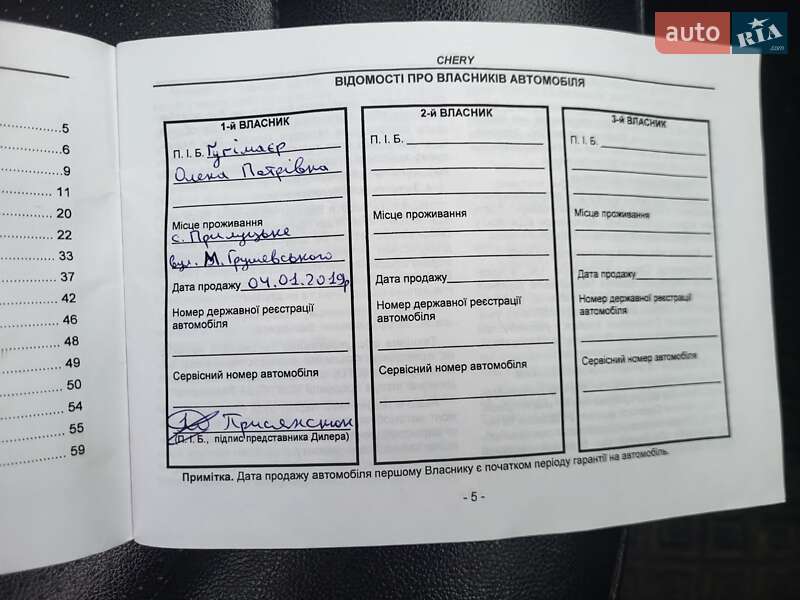 auto RIA .com
CHERY
ВІДОМОСТІ ПРО ВЛАСНИКІВ АВТОМОБІЛЯ
1-й ВЛАСНИК
П. І. Б. Гугімаєр
Олена Петрівна
Місце проживання
с. Прилуцьке
вул. М. Грушевського
Дата продажу 04.01.2019р
Номер державної реєстрації
автомобіля
Сервісний номер автомобіля
(П. І. Б., підпис представника Дилера)
2-й ВЛАСНИК
П. І. Б.
Місце проживання
Дата продажу
Номер державної реєстрації
автомобіля
Сервісний номер автомобіля
3-й ВЛАСНИК
П. І. Б.
Місце проживання
Дата продажу
Номер державної реєстрації
автомобіля
Сервісний номер автомобіля
Примітка. Дата продажу автомобіля першому Власнику є початком періоду гарантії на автомобіль.
- 5 -
5
6
9
11
20
22
33
37
42
46
48
49
50
54
55
59